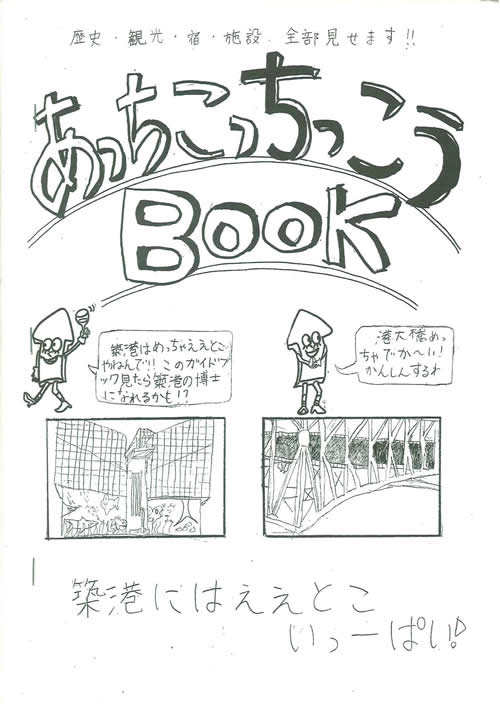 歴史・観光・宿・施設 全部見せます!!
あっちこっちっこう
BOOK
築港はめっちゃええとこ
やねんで!! このガイドブ
ック見たら築港の博士
になれるかも!?
港大橋めっ
ちゃでか〜い!
かんしんするわ
築港にはええとこ
いっーぱい♪